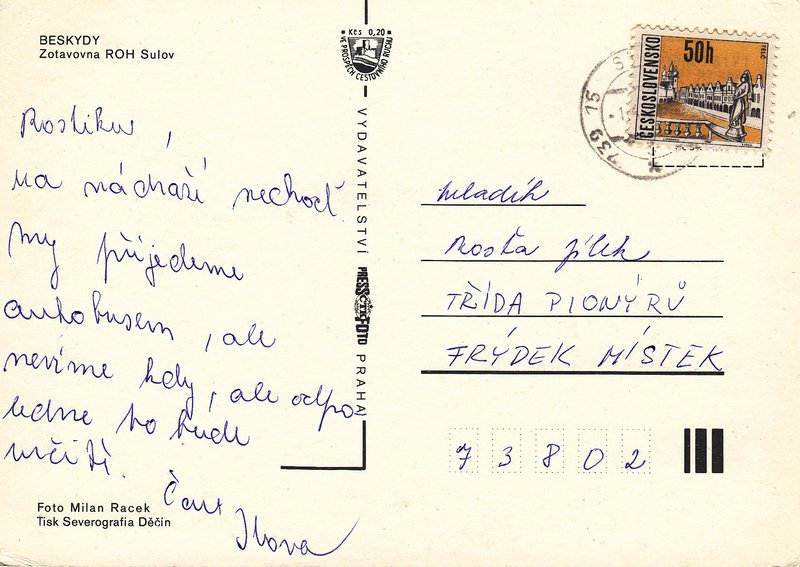 BESKYDY
Zotavovna ROH Sulov
Kčs 0,20
VE PROSPĚCH CESTOVNÍHO RUCHU
ČESKOSLOVENSKO
50h
TELČ
739 15
Rostiku,
na nádraží nechoď
my přijedeme
autobusem, ale
nevíme kdy, ale odpo
ledne to bude
určitě.
Čau
VYDAVATELSTVÍ PRESSFOTO PRAHA
ČTK
mladík
Rosťa Jílek
TŘÍDA PIONÝRŮ
FRÝDEK MÍSTEK
73802
Foto Milan Racek
Tisk Severografia Děčín